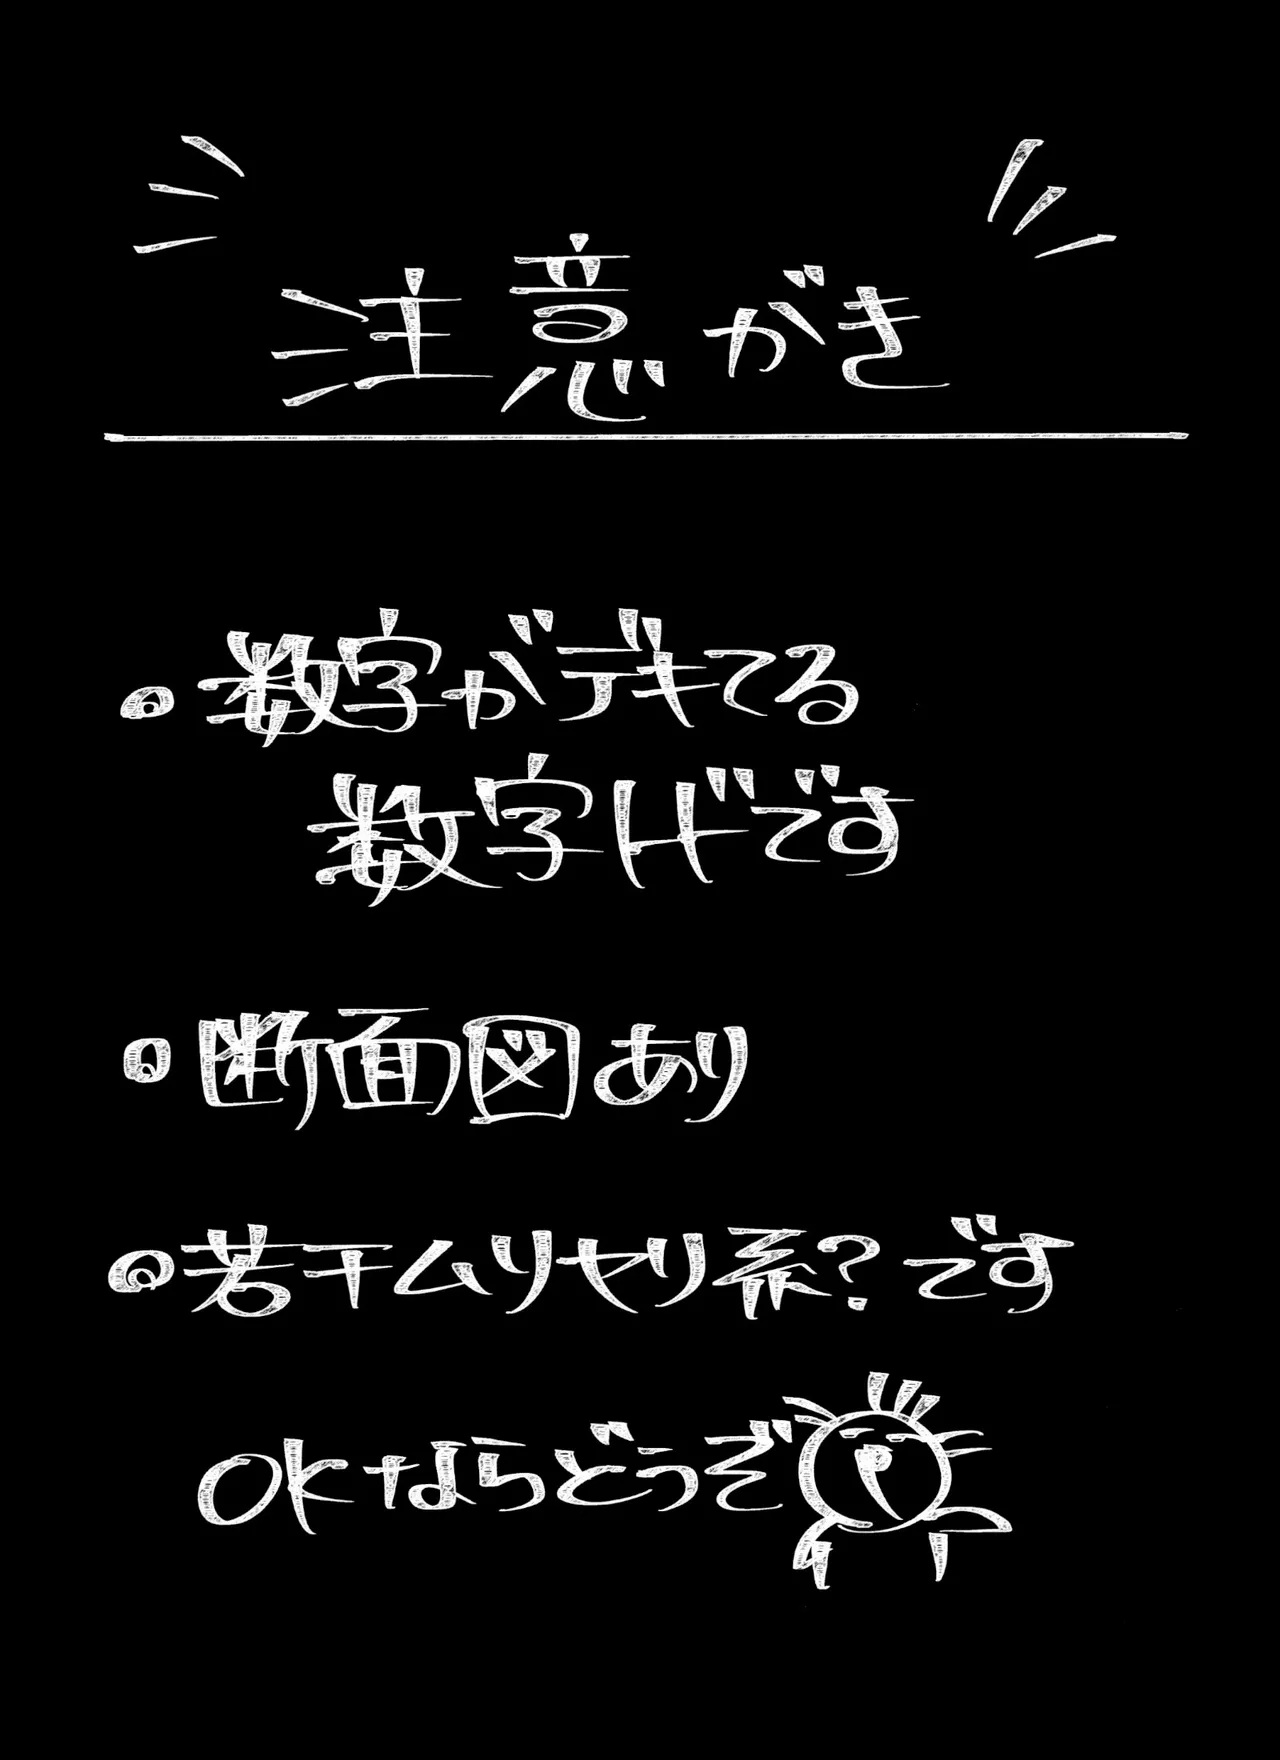 注意がき
・数字がデキてる
数字バグです
・断面図あり
・若干ムリヤリ系?です
OKならどうぞ